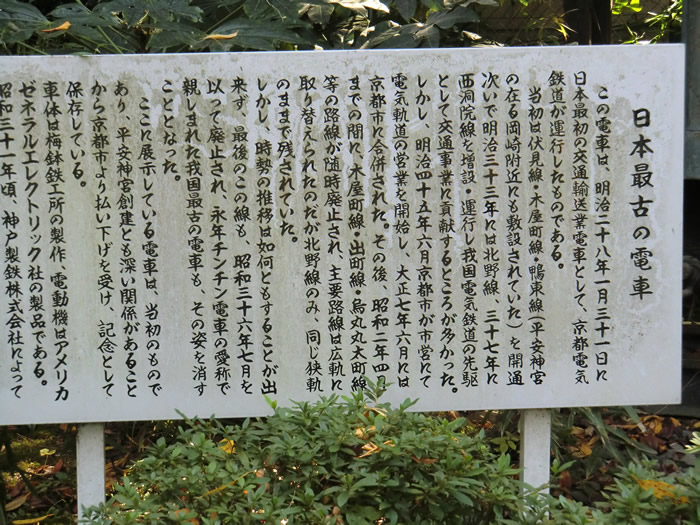 日本最古の電車
この電車は、明治二十八年一月三十一日に
日本最初の交通輸送業電車として、京都電気
鉄道が運行したものである。
当初は伏見線・木屋町線・鴨東線(平安神宮
の在る岡崎附近にも敷設されていた)を開通
次いで明治三十三年には北野線、三十七年に
西洞院線を増設・運行し我国電気鉄道の先駆
として交通事業に貢献するところが多かった。
しかし、明治四十五年六月京都市が市営にて
電気軌道の営業を開始し、大正七年六月には
京都市に合併された。その後、昭和二年四月
までの間に、木屋町線・出町線・烏丸丸太町線
等の路線が随時廃止され、主要路線は広軌に
取り替えられたのだが北野線のみ、同じ狭軌
のままで残されていた。
しかし、時勢の推移は如何ともすることが出
来ず、最後のこの線も、昭和三十六年七月を
以って廃止され、永年チンチン電車の愛称で
親しまれた我国最古の電車も、その姿を消す
こととなった。
ここに展示している電車は、当初のもので
あり、平安神宮創建とも深い関係があること
から京都市より払い下げを受け、記念として
保存している。
車体は梅鉢鉄工所の製作、電動機はアメリカ
ゼネラルエレクトリック社の製品である。
昭和三十一年頃、神戸製鉄株式会社によって